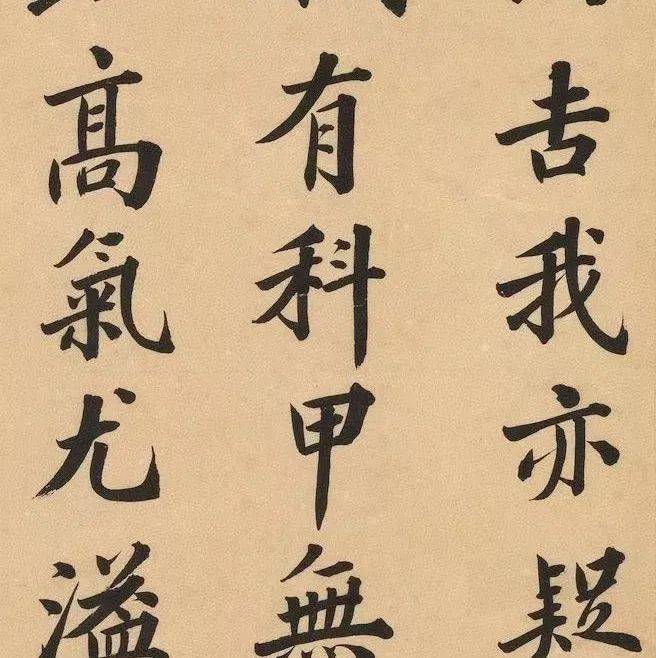 吉我亦疑
有科甲無
高氣尤溢